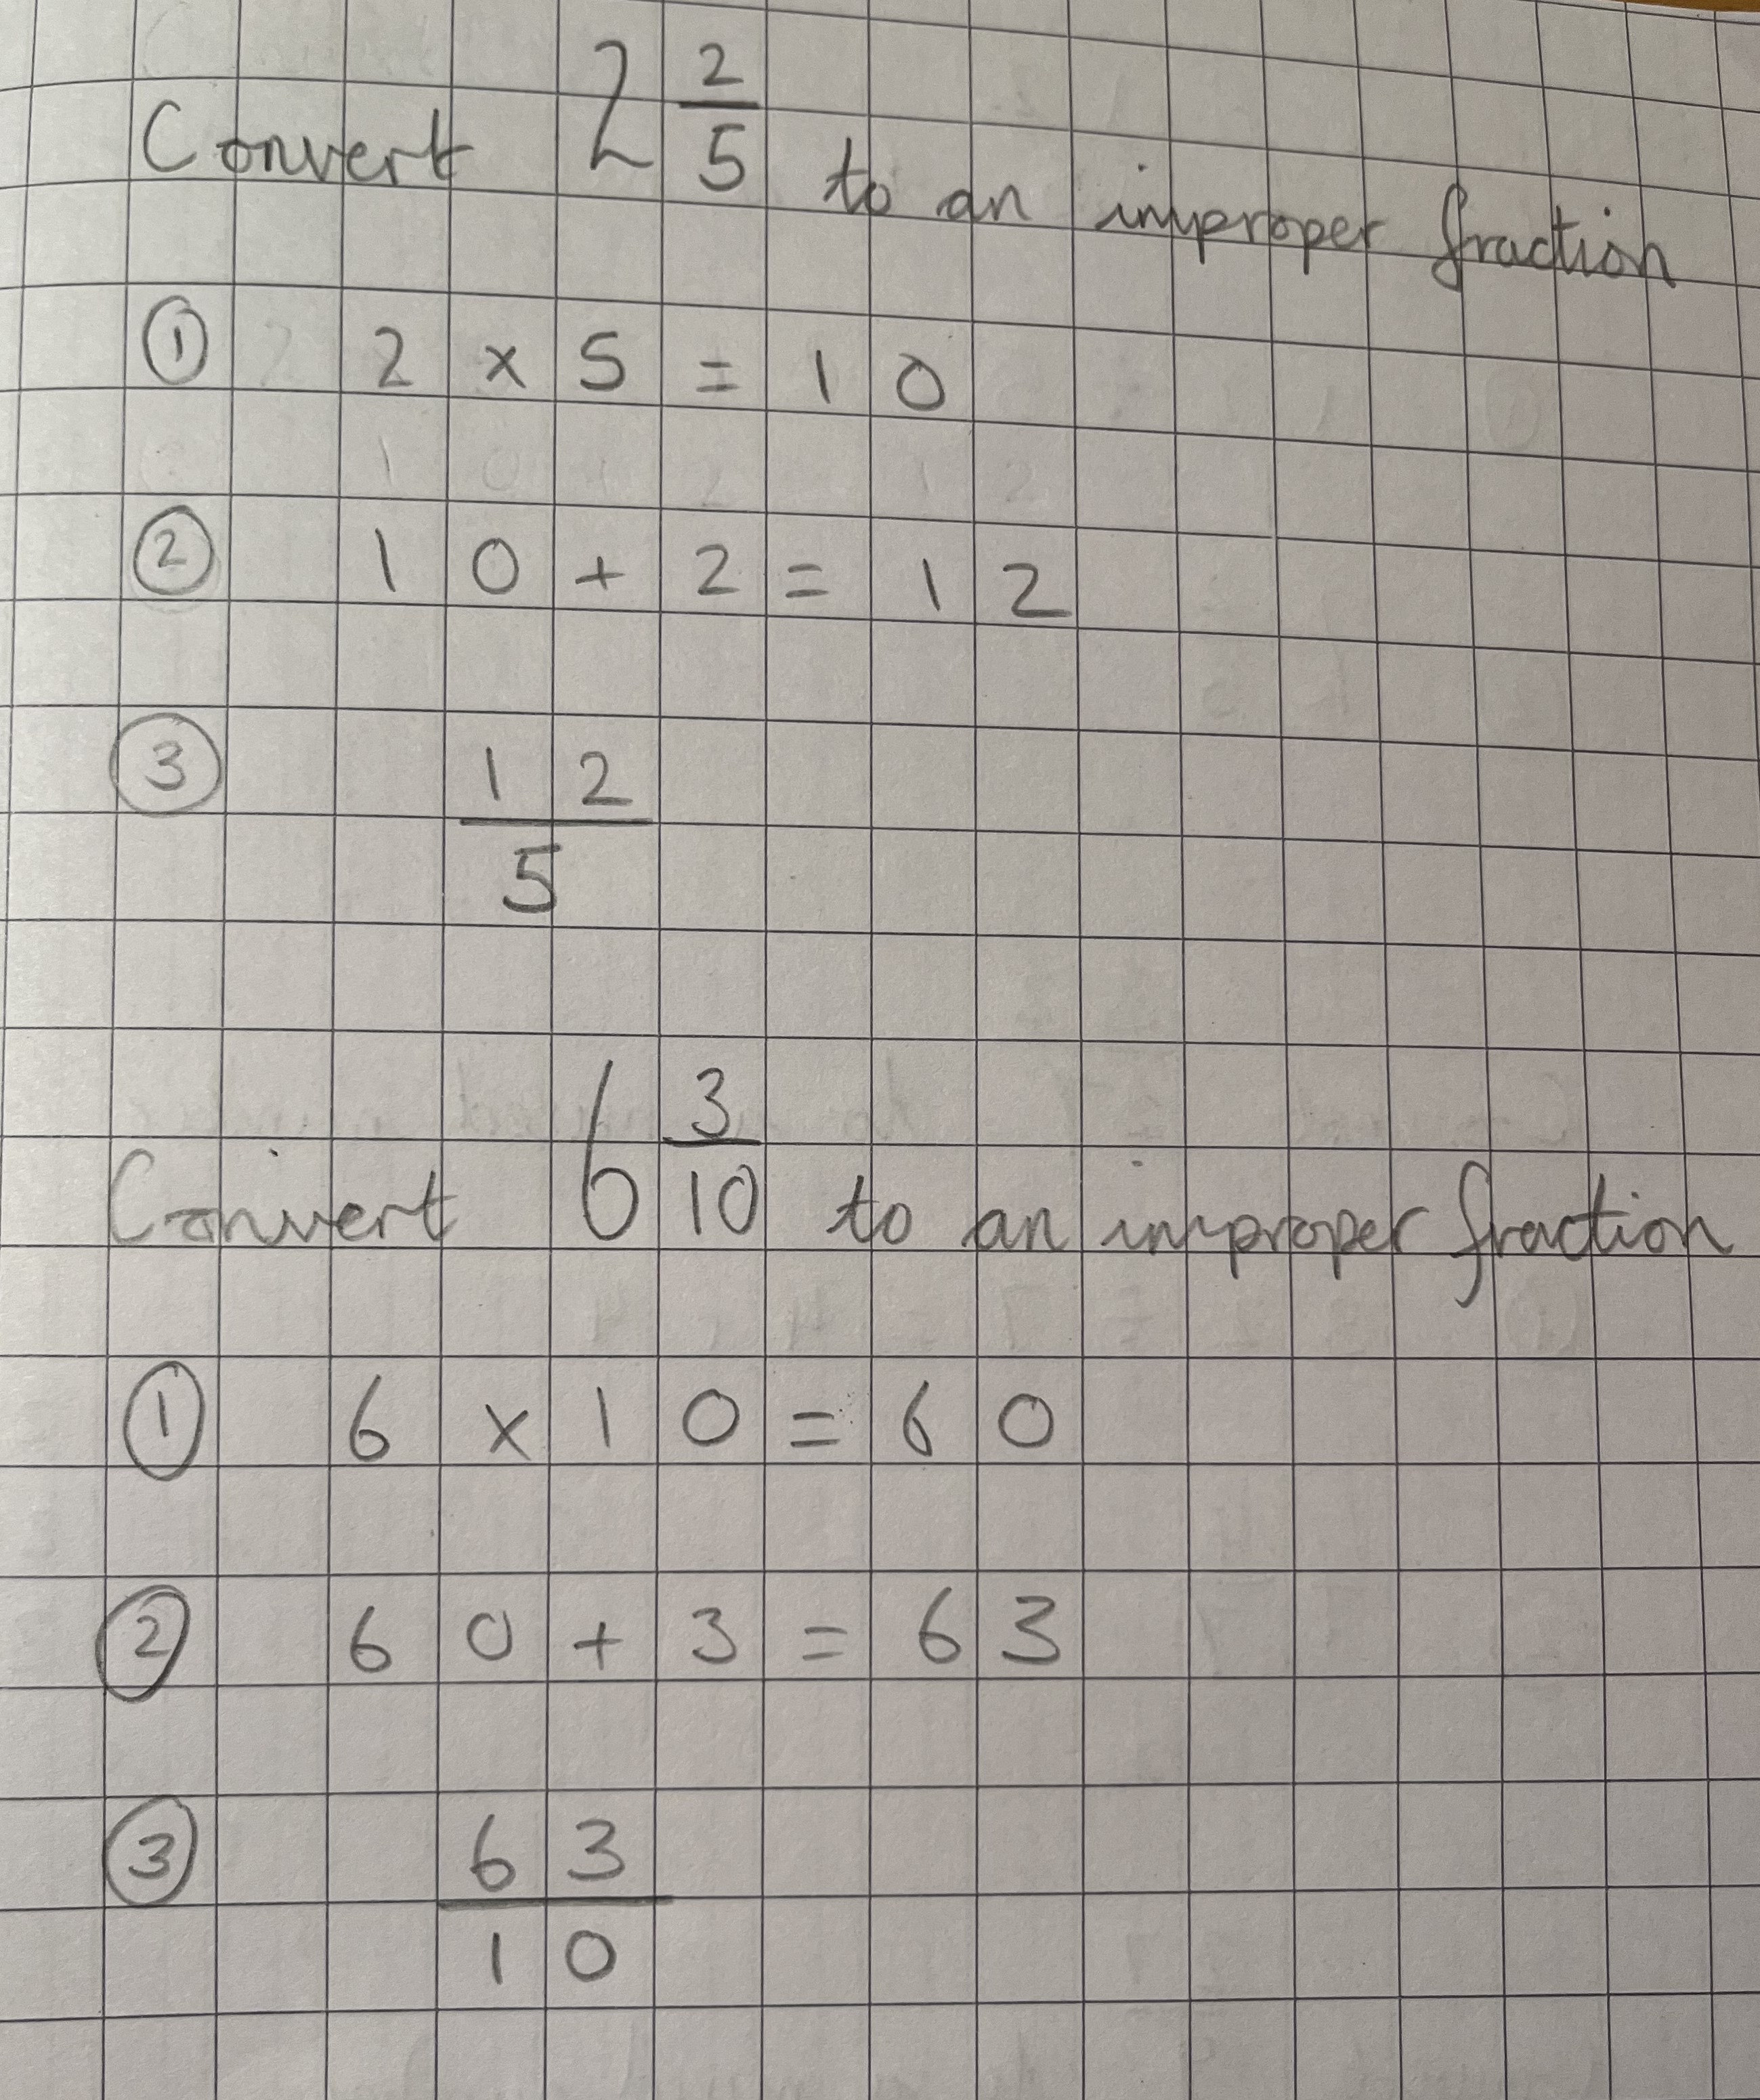 Convert 2 2/5 to an improper fraction
① 2 × 5 = 10
② 10 + 2 = 12
③ 12/5
Convert 6 3/10 to an improper fraction
① 6 × 10 = 60
② 60 + 3 = 63
③ 63/10